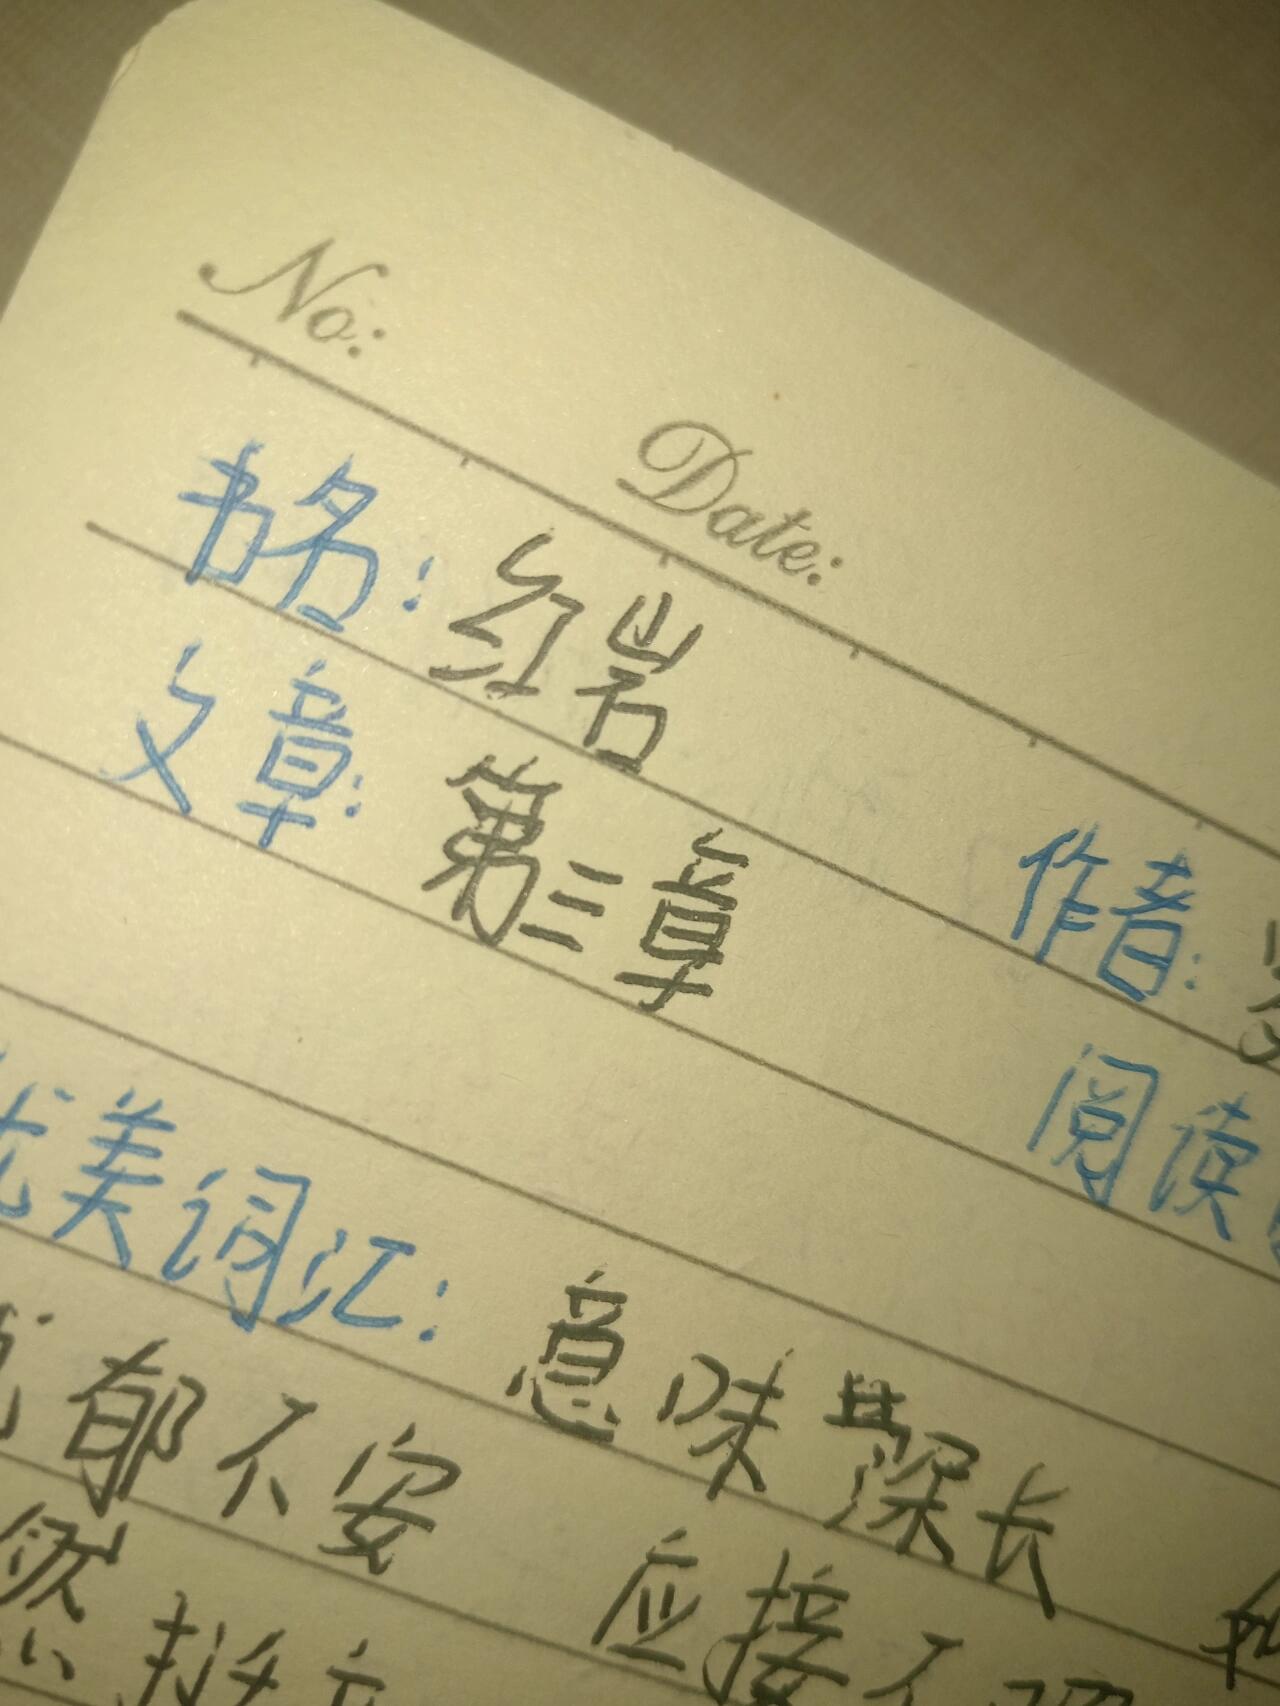 No:
Date:
书名：红岩
作者：
文章：第三章
阅读
优美词汇：意味深长
郁不安
应接不
然